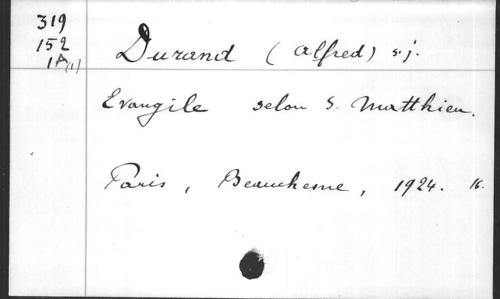 319
152
1A(1)
Durand (Alfred) s.j.
Evangile selon S. Matthieu.
Paris, Beauchesne, 1924. 16.